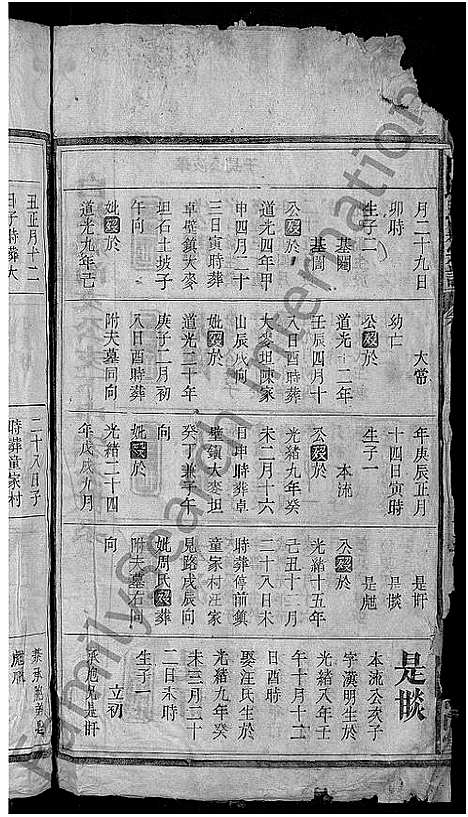 月二十九日
卯時
生子二
基閣
基閩
公歿於
道光四年甲
申四月二十
三日寅時葬
卓壁鎮大麥
坦石土坡子
午向
妣歿於
道光九年己
丑正月十二
日子時葬大
大常
幼亡
公歿於
道光十二年
壬辰四月十
八日酉時葬
大麥坦陳家
山辰戌向
妣歿於
道光二十年
庚子二月初
八日酉時葬
附夫墓同向
二十八日子
時葬童家村
年庚辰正月
十四日寅時
生子一
本流
公歿於
光緒九年癸
未二月十六
日申時葬卓
壁鎮大麥坦
癸丁兼子午
向
妣歿於
光緒二十四
年戊戌九月
是旰
是睒
是彪
公歿於
光緒十五年
己丑十二月
二十八日未
時葬停前鎮
童家村汪家
見路戌辰向
妣周氏歿葬
附夫墓右向
向
是睒
本流公次子
字漢明生於
光緒八年壬
午十月十二
日酉時
娶汪氏生於
光緒九年癸
未三月二十
二日未時
生子一
立初
承胞兄是旰